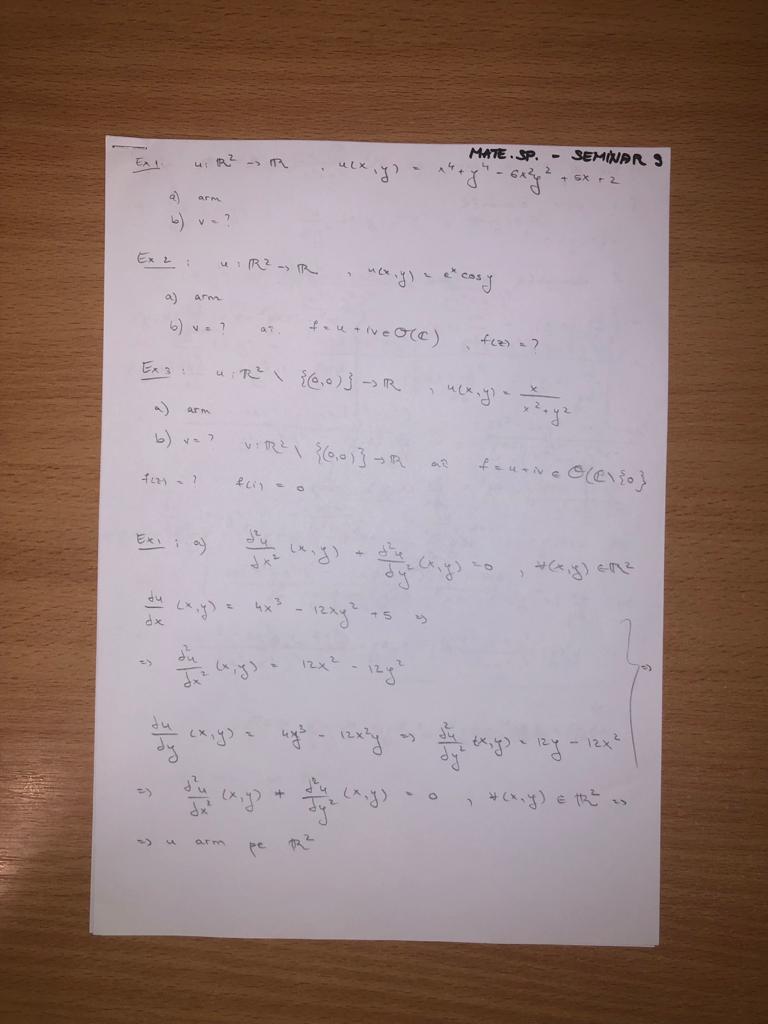 MATE.SP. - SEMINAR 9
Ex1: u: ℝ² → ℝ , u(x,y) = x⁴ + y⁴ - 6x²y² + 5x + 2
a) arm
b) v = ?
Ex 2 : u : ℝ² → ℝ , u(x,y) = eˣ cos y
a) arm
b) v = ? aî. f = u + iv ∈ O(ℂ) , f(z) = ?
Ex 3 : u : ℝ² \ {(0,0)} → ℝ , u(x,y) = x / x² + y²
a) arm
b) v = ? v: ℝ² \ {(0,0)} → ℝ aî f = u + iv ∈ O(ℂ\{0}
f(z) = ? f(i) = 0
Ex1 : a) ∂²u/∂x² (x,y) + ∂²u/∂y² (x,y) = 0 , ∀(x,y) ∈ ℝ²
∂u/∂x (x,y) = 4x³ - 12xy² + 5 ⇒
⇒ ∂²u/∂x² (x,y) = 12x² - 12y²
∂u/∂y (x,y) = 4y³ - 12x²y ⇒ ∂²u/∂y² (x,y) = 12y - 12x² ⇒
⇒ ∂²u/∂x² (x,y) + ∂²u/∂y² (x,y) = 0 , ∀(x,y) ∈ ℝ² ⇒
⇒ u arm pe ℝ²